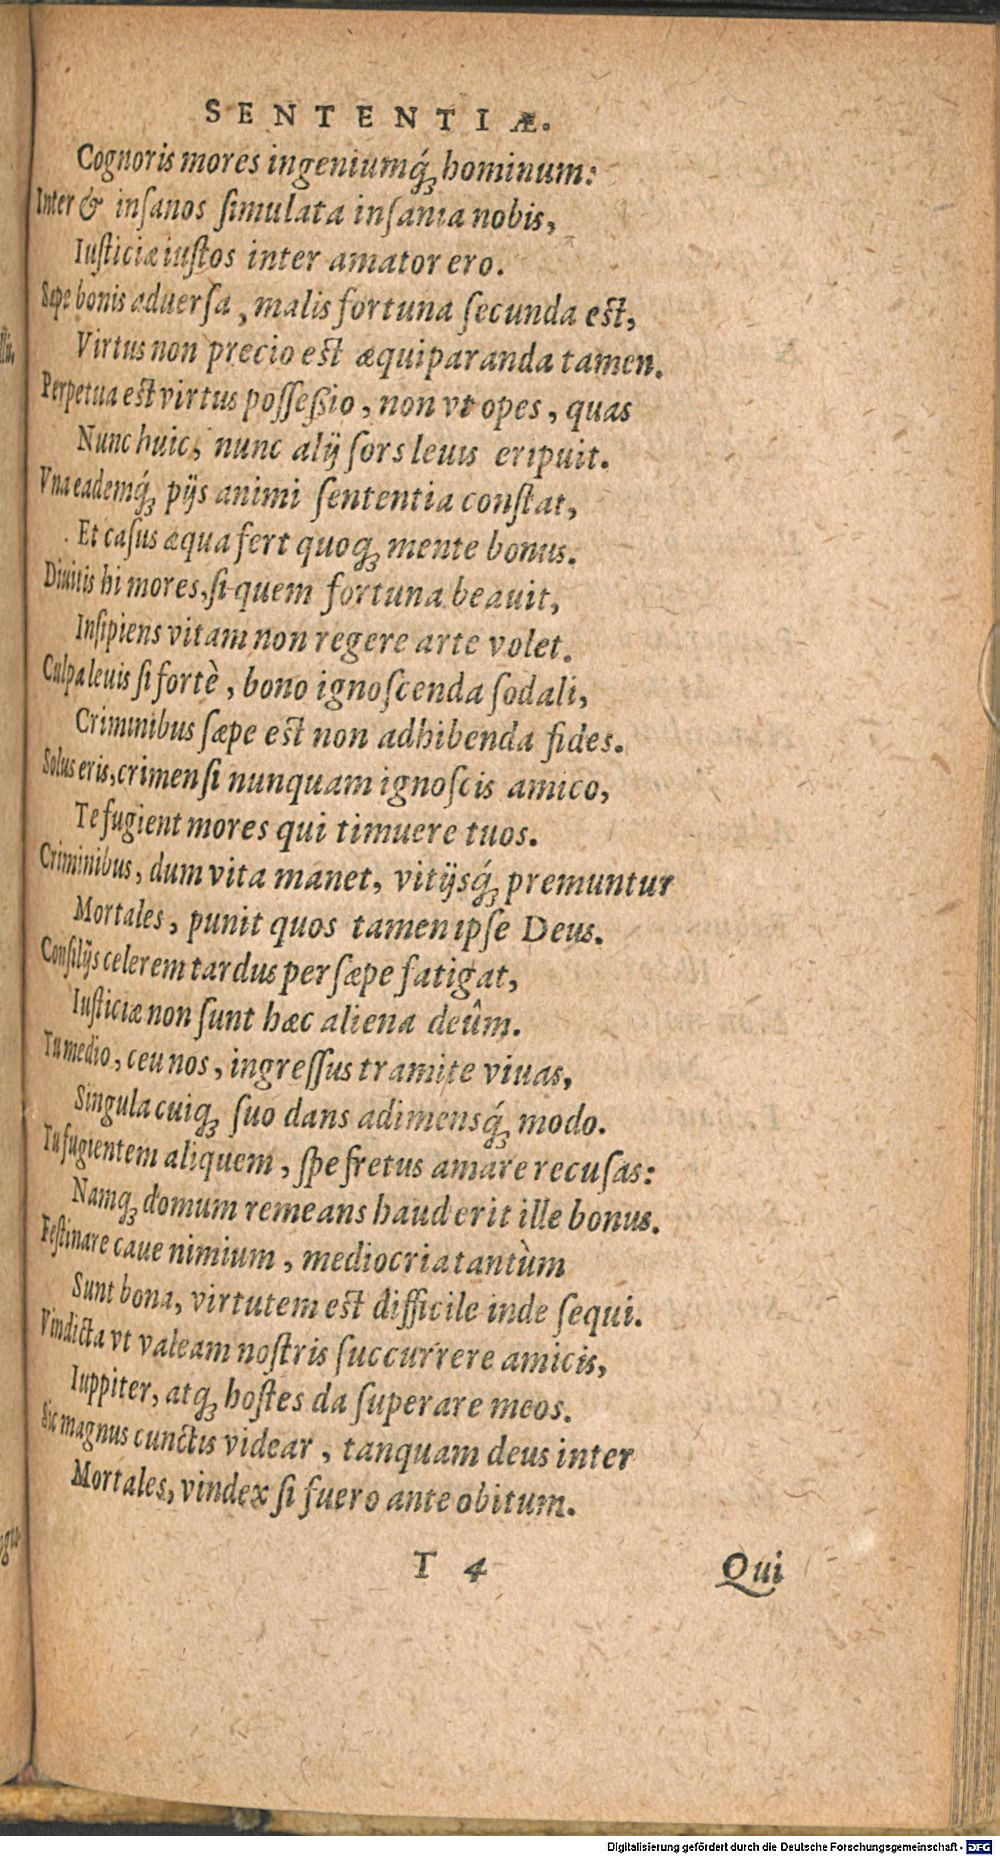 SENTENTIÆ.
Cognoris mores ingeniumq́; hominum:
Inter & insanos simulata insania nobis,
Iusticiæ iustos inter amator ero.
Sæpe bonis aduersa, malis fortuna secunda est,
Virtus non precio est æquiparanda tamen.
Perpetua est virtus possessio, non vt opes, quas
Nunc huic, nunc alij sors leuis eripuit.
Vna eademq́; pijs animi sententia constat,
Et casus æqua fert quoq; mente bonus.
Diuitis hi mores, si quem fortuna beauit,
Insipiens vitam non regere arte volet.
Culpa leuis si fortè, bono ignoscenda sodali,
Criminibus sæpe est non adhibenda fides.
Solus eris, crimen si nunquam ignoscis amico,
Te fugient mores qui timuere tuos.
Criminibus, dum vita manet, vitijsq́; premuntur
Mortales, punit quos tamen ipse Deus.
Consilijs celerem tardus persæpe fatigat,
Iusticiæ non sunt hæc aliena deûm.
Tu medio, ceu nos, ingressus tramite viuas,
Singula cuiq; suo dans adimensq́; modo.
Tu fugientem aliquem, spe fretus amare recusas:
Namq; domum remeans haud erit ille bonus.
Festinare caue nimium, mediocria tantùm
Sunt bona, virtutem est difficile inde sequi.
Vindicta vt valeam nostris succurrere amicis,
Iuppiter, atq; hostes da superare meos.
Sic magnus cunctis videar, tanquam deus inter
Mortales, vindex si fuero ante obitum.
T 4 Qui
Digitalisierung gefördert durch die Deutsche Forschungsgemeinschaft - DFG